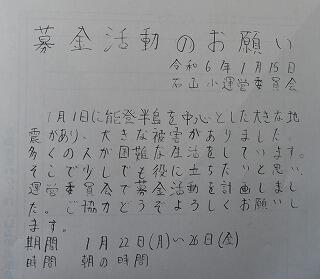 募金活動のお願い
令和6年1月15日
石山小運営委員会
1月1日に能登半島を中心とした大きな地
震があり、大きな被害がありました。
多くの人が困難な生活をしています。
そこで少しでも役に立ちたいと思い、
運営委員会で募金活動を計画しまし
た。ご協力どうぞよろしくお願いし
ます。
期間 1月22日(月)~26日(金)
時間 朝の時間